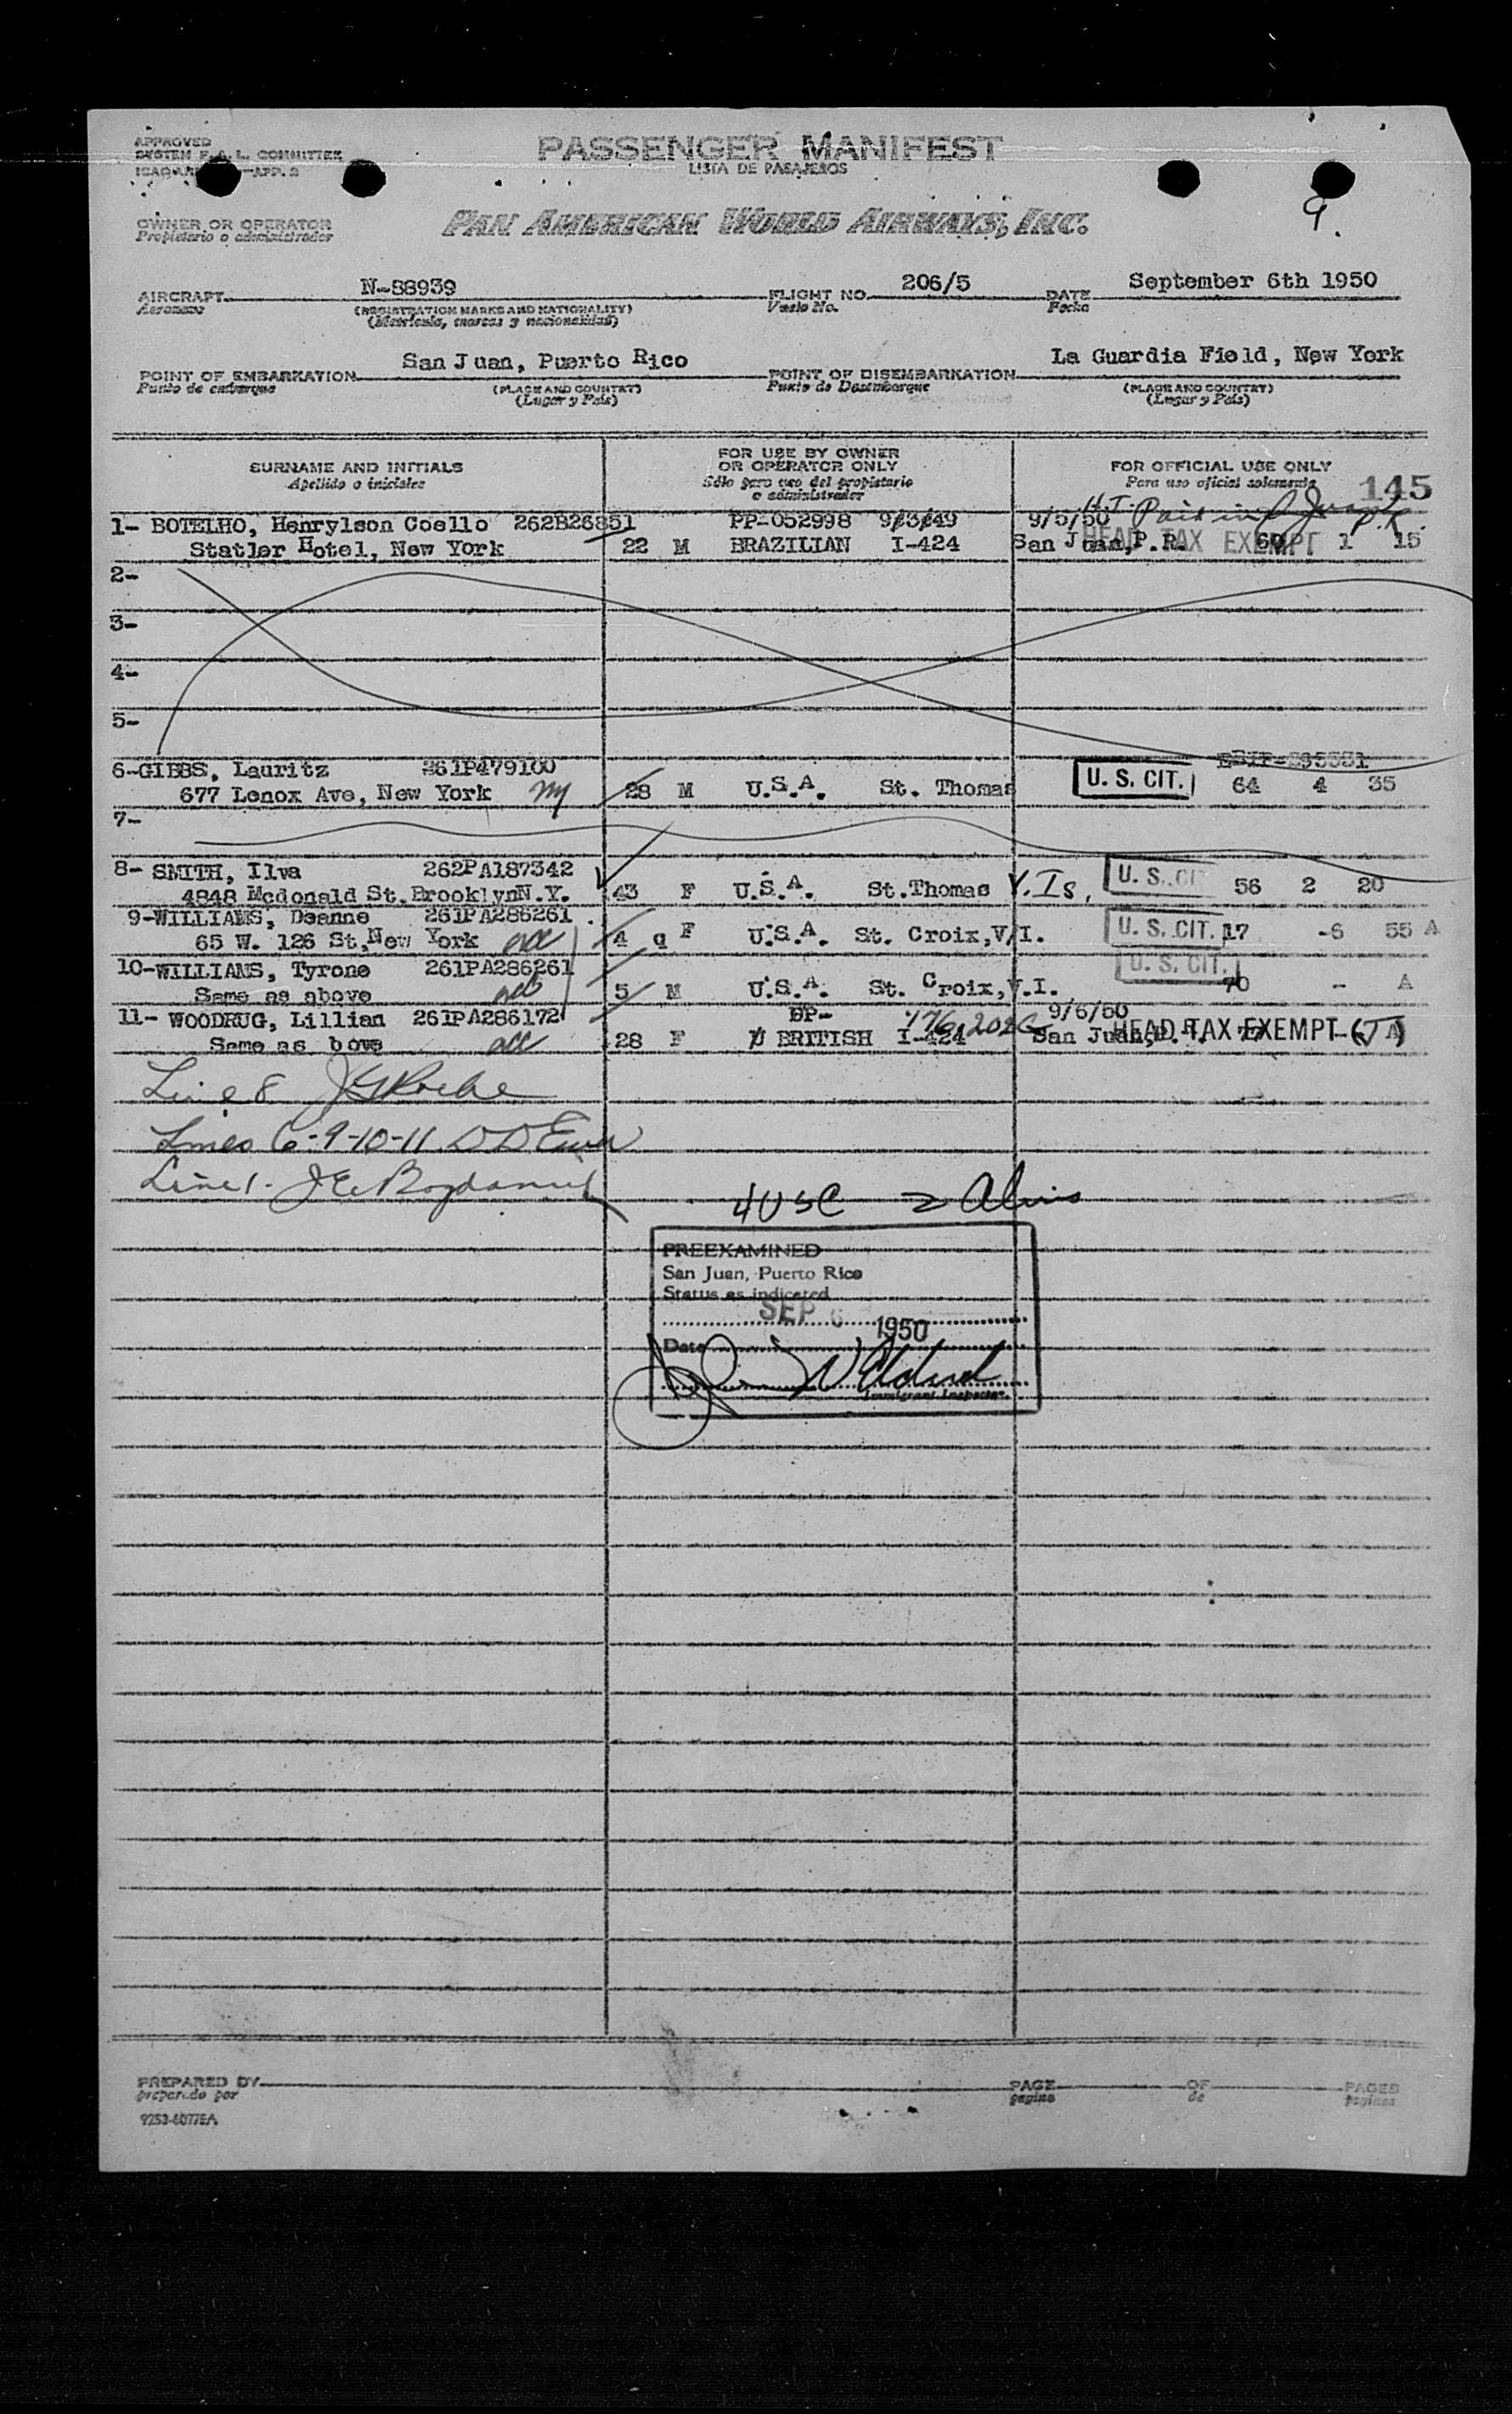 APPROVED
SYSTEM F.A.L. COMMITTEE
APP. 2
PASSENGER MANIFEST
LISTA DE PASAJEROS
OWNER OR OPERATOR
Propietario o administrador
PAN AMERICAN WORLD AIRWAYS, INC.
9.
AIRCRAFT N-88939 FLIGHT NO. 206/5 DATE September 6th 1950
Aeronave (REGISTRATION MARKS AND NATIONALITY) Vuelo No. Fecha
(Matrícula, marcas y nacionalidad)
POINT OF EMBARKATION San Juan, Puerto Rico POINT OF DISEMBARKATION La Guardia Field, New York
Punto de embarque (PLACE AND COUNTRY) Punto de Desembarque (PLACE AND COUNTRY)
(Lugar y País) (Lugar y País)
SURNAME AND INITIALS FOR USE BY OWNER OR OPERATOR ONLY FOR OFFICIAL USE ONLY
Apellido o iniciales Sólo para uso del propietario o administrador Para uso oficial solamente 145
1- BOTELHO, Henrylson Coello 262B26851 PP-052998 9/3/49 9/5/50 H.T. Paid in P.R.
Statler Hotel, New York 22 M BRAZILIAN I-424 San Juan, P.R. HEAD TAX EXEMPT 1 15
2-
3-
4-
5-
6-GIBBS, Lauritz 261P479100
677 Lenox Ave, New York 28 M U.S.A. St. Thomas U. S. CIT. 64 4 35
7-
8- SMITH, Ilva 262PA187342
4848 Mcdonald St.BrooklynN.Y. 43 F U.S.A. St.Thomas V.Is, U. S. CIT 56 2 20
9-WILLIAMS, Deanne 261PA286261
65 W. 126 St,New York acc 4 q F U.S.A. St. Croix,V.I. U. S. CIT. 17 -6 55 A
10-WILLIAMS, Tyrone 261PA286261
Same as above acc 5 M U.S.A. St. Croix,V.I. U. S. CIT. 70 - A
11- WOODRUG, Lillian 261PA286172 BP- 9/6/50
Same as bove acc 28 F BRITISH I-424 San Juan, P.R. HEAD TAX EXEMPT
Line 8
Lines 6-9-10-11
Line 1-
4 USC 2 Aliens
PREEXAMINED
San Juan, Puerto Rico
Status as indicated
SEP 6 1950
Date
Immigrant Inspector.
PREPARED BY PAGE OF PAGES
preparado por pagina de paginas
9253-6077EA